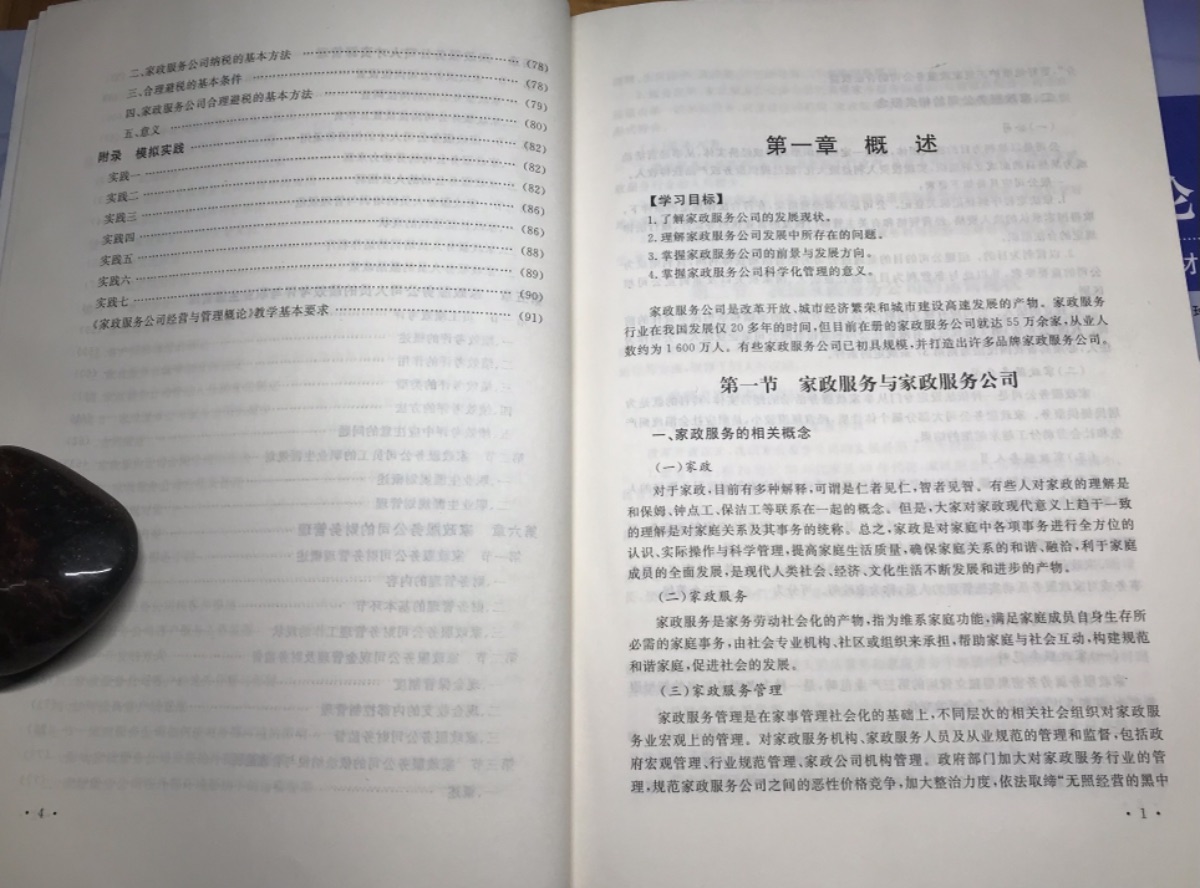 二、家政服务公司纳税的基本方法 …… (78)
三、合理避税的基本条件 …… (78)
四、家政服务公司合理避税的基本方法 …… (79)
五、意义 …… (80)
附录 模拟实践 …… (82)
实践一 …… (82)
实践二 …… (82)
实践三 …… (86)
实践四 …… (86)
实践五 …… (88)
实践六 …… (89)
实践七 …… (90)
《家政服务公司经营与管理概论》教学基本要求 …… (91)
· 4 ·
第一章 概 述
【学习目标】
1.了解家政服务公司的发展现状。
2.理解家政服务公司发展中所存在的问题。
3.掌握家政服务公司的前景与发展方向。
4.掌握家政服务公司科学化管理的意义。
家政服务公司是改革开放、城市经济繁荣和城市建设高速发展的产物。家政服务
行业在我国发展仅20多年的时间,但目前在册的家政服务公司就达55万余家,从业人
数约为1 600万人。有些家政服务公司已初具规模,并打造出许多品牌家政服务公司。
第一节 家政服务与家政服务公司
一、家政服务的相关概念
(一)家政
对于家政,目前有多种解释,可谓是仁者见仁,智者见智。有些人对家政的理解是
和保姆、钟点工、保洁工等联系在一起的概念。但是,大家对家政现代意义上趋于一致
的理解是对家庭关系及其事务的统称。总之,家政是对家庭中各项事务进行全方位的
认识、实际操作与科学管理,提高家庭生活质量,确保家庭关系的和谐、融洽,利于家庭
成员的全面发展,是现代人类社会、经济、文化生活不断发展和进步的产物。
(二)家政服务
家政服务是家务劳动社会化的产物,指为维系家庭功能,满足家庭成员自身生存所
必需的家庭事务,由社会专业机构、社区或组织来承担,帮助家庭与社会互动,构建规范
和谐家庭,促进社会的发展。
(三)家政服务管理
家政服务管理是在家事管理社会化的基础上,不同层次的相关社会组织对家政服
务业宏观上的管理。对家政服务机构、家政服务人员及从业规范的管理和监督,包括政
府宏观管理、行业规范管理、家政公司机构管理。政府部门加大对家政服务行业的管
理,规范家政服务公司之间的恶性价格竞争,加大整治力度,依法取缔“无照经营的黑中
· 1 ·
论
材